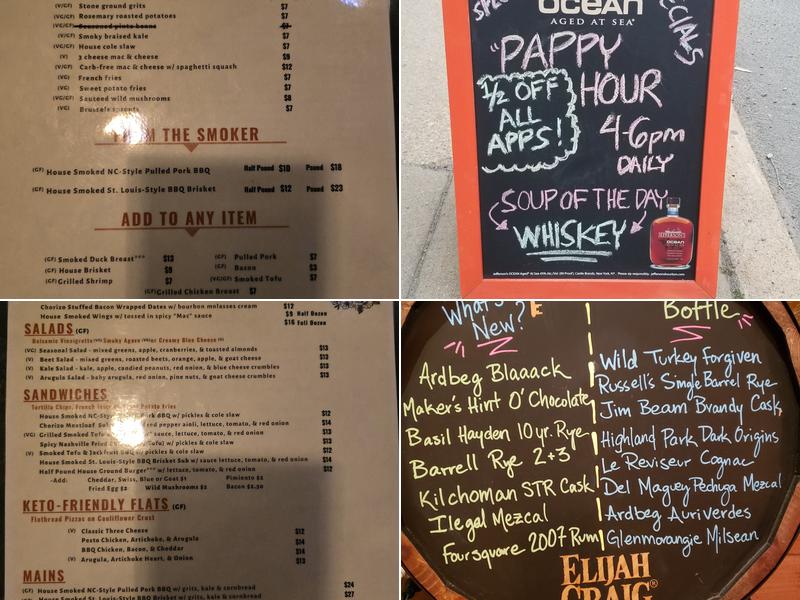 (V/GF) Stone ground grits $7
(VG/GF) Rosemary roasted potatoes $7
(VG/GF) Seasoned pinto beans $7
(V/GF) Smoky braised kale $7
(VG/GF) House cole slaw $7
(V) 3 cheese mac & cheese $9
(V/GF) Carb-free mac & cheese w/ spaghetti squash $12
(VG) French fries $7
(VG) Sweet potato fries $7
(VG/GF) Sauteed wild mushrooms $8
(VG) Brussels sprouts $7
THE SMOKER
(GF) House Smoked NC-Style Pulled Pork BBQ Half Pound $10 Pound $18
(GF) House Smoked St. Louis-Style BBQ Brisket Half Pound $12 Pound $23
ADD TO ANY ITEM
(GF) Smoked Duck Breast*** $13
(GF) House Brisket $9
(GF) Grilled Shrimp $7
(GF) Pulled Pork $7
(GF) Bacon $3
(VG/GF) Smoked Tofu $7
(GF) Grilled Chicken Breast $7
OCEAN
AGED AT SEA®
SPECIALS
"PAPPY
HOUR
1/2 OFF
ALL
APPS!
4-6pm
DAILY
SOUP OF THE DAY
WHISKEY
JEFFERSON'S
OCEAN
Chorizo Stuffed Bacon Wrapped Dates w/ bourbon molasses cream $12
House Smoked Wings w/ tossed in spicy "Mac" sauce $9 Half Dozen
$16 Full Dozen
SALADS (GF)
Balsamic Vinaigrette (VG) Smoky Agave (VG) or Creamy Blue Cheese (V)
(VG) Seasonal Salad - mixed greens, apple, cranberries, & toasted almonds $13
(V) Beet Salad - mixed greens, roasted beets, orange, apple, & goat cheese $13
(V) Kale Salad - kale, apple, candied peanuts, red onion, & blue cheese crumbles $13
(V) Arugula Salad - baby arugula, red onion, pine nuts, & goat cheese crumbles $13
SANDWICHES
Tortilla Chips, French Potato Fries
House Smoked NC-Style BBQ w/ pickles & cole slaw $12
Chorizo Meatloaf red pepper aioli, lettuce, tomato, & red onion $14
(VG) Grilled Smoked Tofu sauce, lettuce, tomato, & red onion $13
Spicy Nashville Fried Tofu) w/ pickles & cole slaw $13
(V) Smoked Tofu & Jackfruit w/ pickles & cole slaw $12
House Smoked St. Louis-Style BBQ Brisket Sub w/ sauce lettuce, tomato, & red onion $14
Half Pound House Ground Burger*** w/ lettuce, tomato, & red onion $12
-Add: Cheddar, Swiss, Blue or Goat $1 Pimiento $2
Fried Egg $2 Wild Mushrooms $2 Bacon $2.50
KETO-FRIENDLY FLATS (GF)
Flatbread Pizzas on Cauliflower Crust
(V) Classic Three Cheese $12
Pesto Chicken, Artichoke, & Arugula $14
BBQ Chicken, Bacon, & Cheddar $14
(V) Arugula, Artichoke Heart, & Onion $13
MAINS
(GF) House Smoked NC-Style Pulled Pork BBQ w/ grits, kale & cornbread $24
(GF) House Smoked St. Louis-Style BBQ Brisket w/ grits, kale & cornbread $27
What's
New?
Ardbeg Blaaack
Maker's Hint O' Chocolate
Basil Hayden 10 yr. Rye
Barrell Rye 2+3
Kilchoman STR Cask
Ilegal Mezcal
Foursquare 2007 Rum
Bottle
Wild Turkey Forgiven
Russell's Single Barrel Rye
Jim Beam Brandy Cask
Highland Park Dark Origins
Le Reviseur Cognac
Del Maguey Pechuga Mezcal
Ardbeg Auriverdes
Glenmorangie Milsean
ELIJAH
CRAIG®